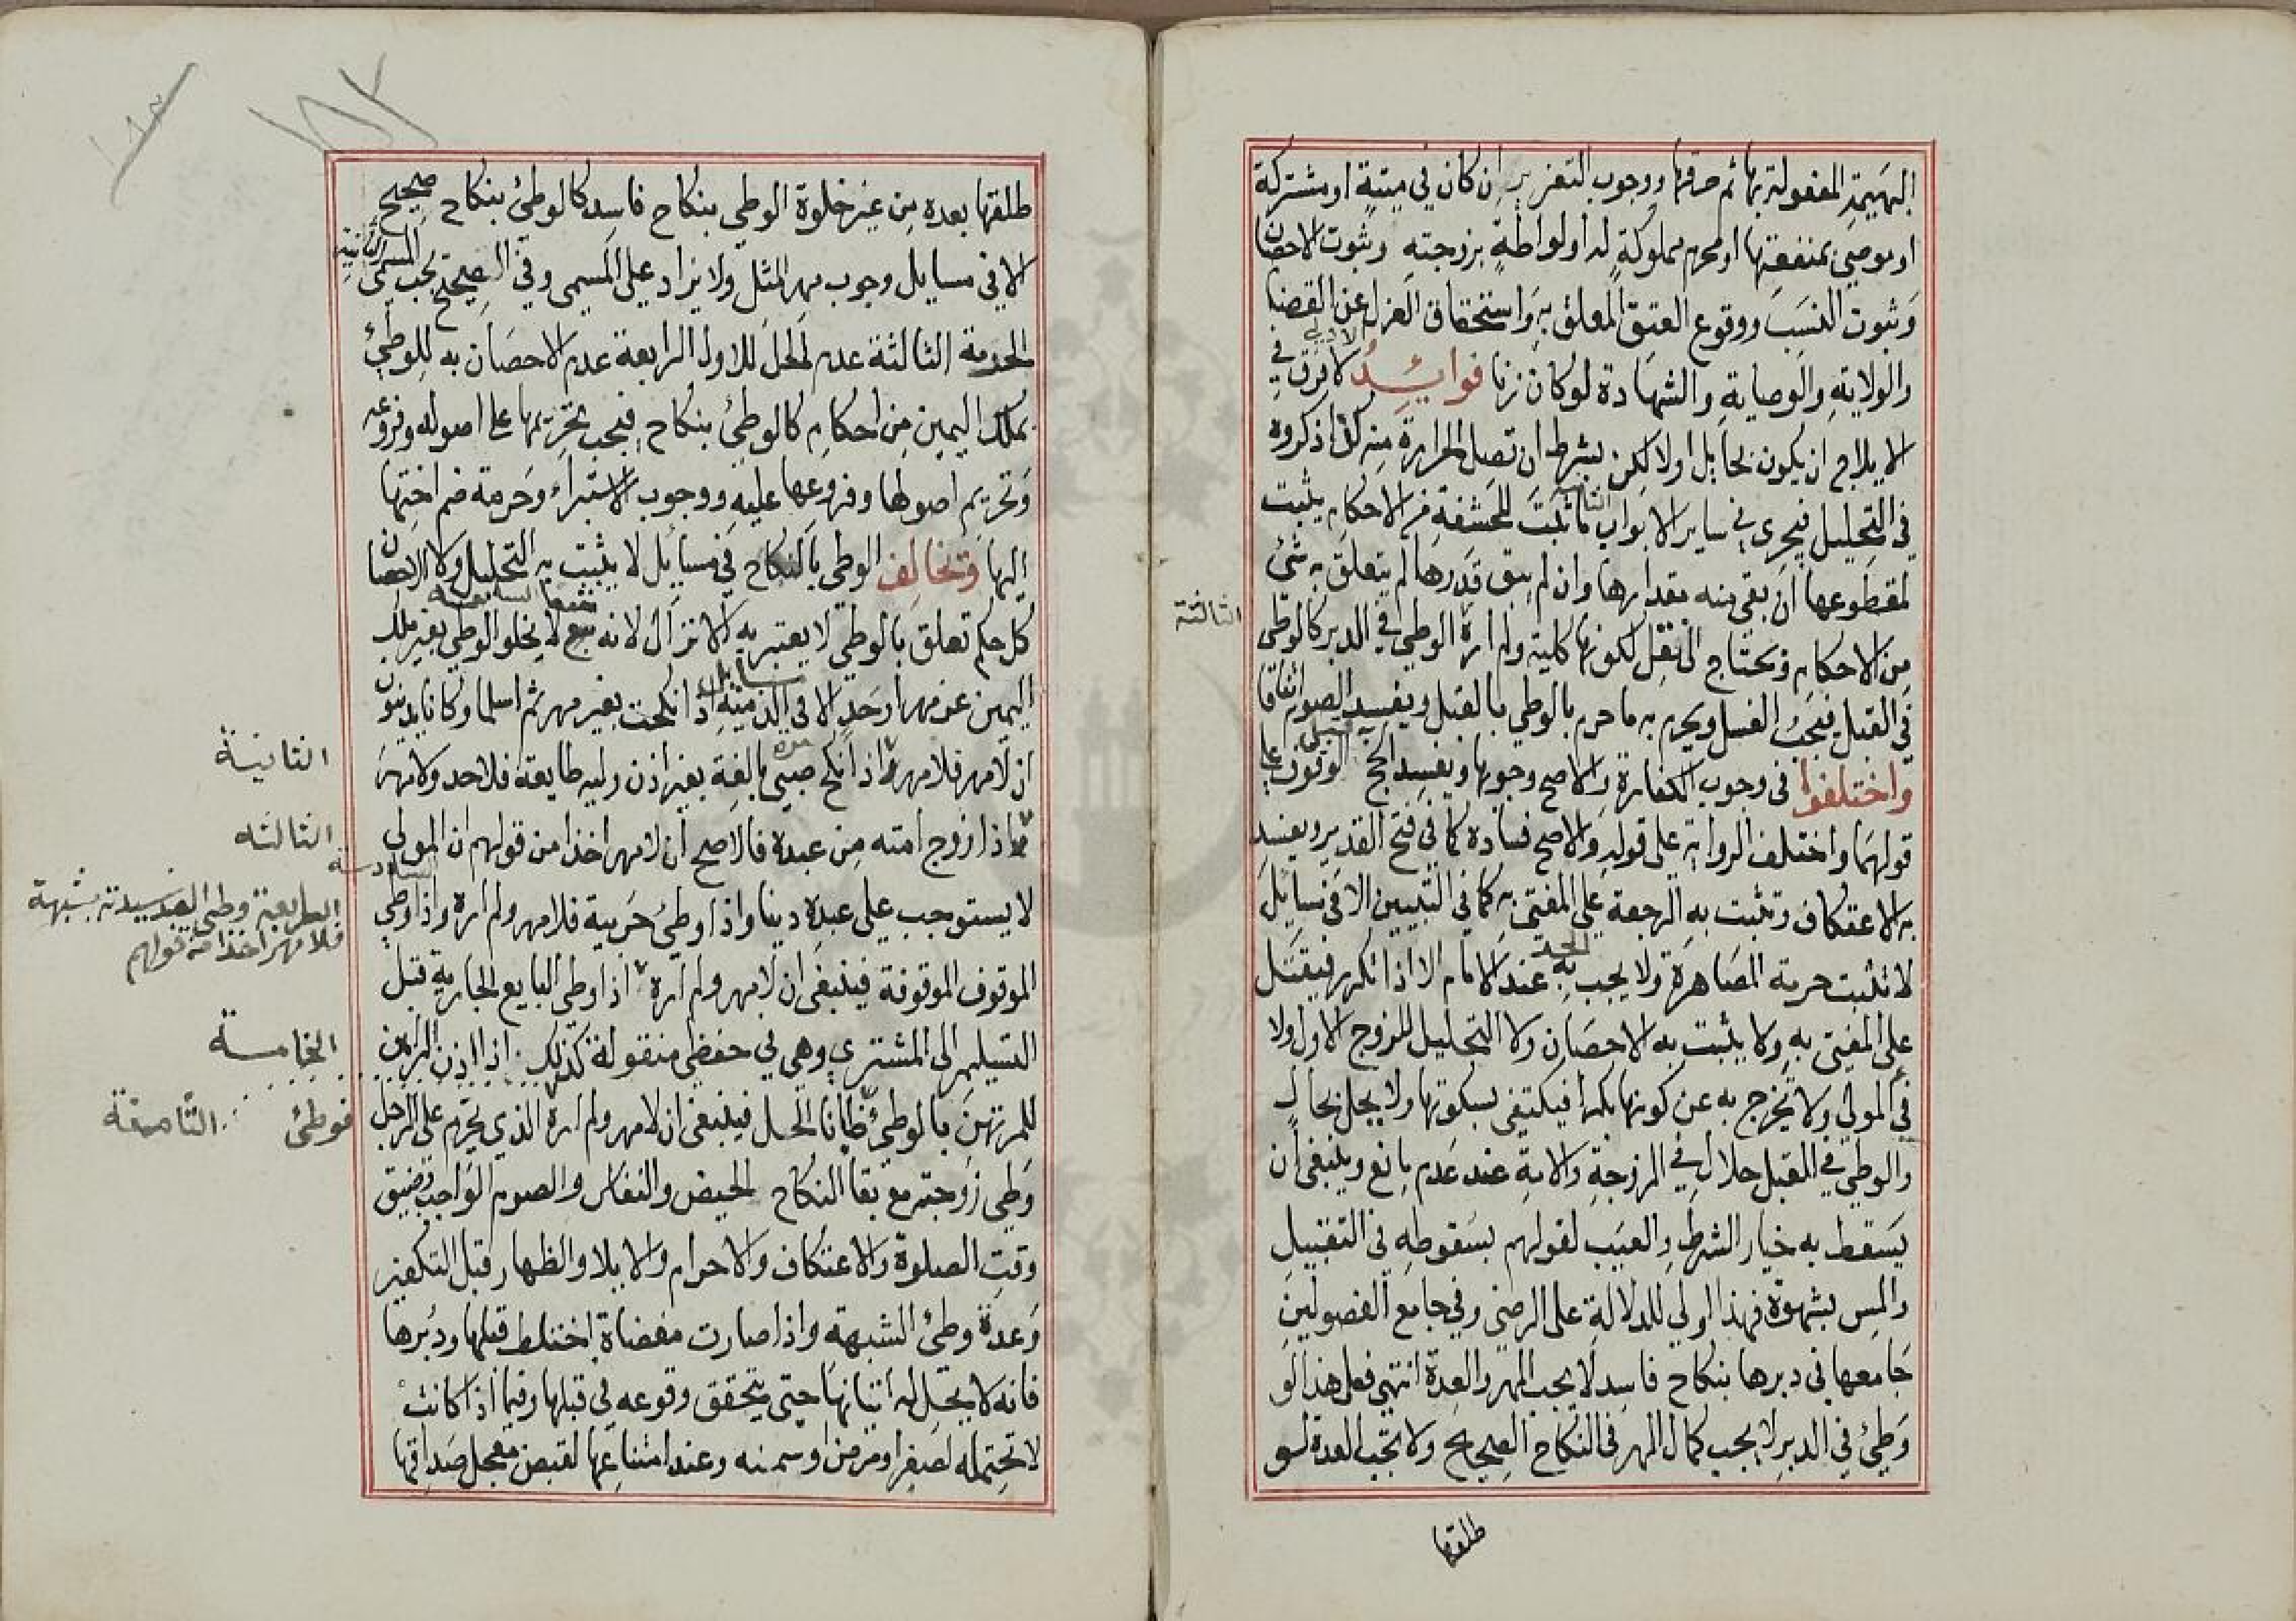 البهيمة المفعولة بها ثم حرقها ووجوب التعزير ان كان في ميتة او مشتركة
او موصى بمنفعتها او محرم مملوكة له او لواطة بزوجته وثبوت الاحصان
وثبوت النسب ووقوع العتق المعلق به واستحقاق العزل عن القضا
والولاية والوصاية والشهادة لو كان زنا فوايد الاولى لا فرق في
الايلاج ان يكون بحايل اولا لكن بشرط ان تصل الحرارة منه كذا ذكروه
في التحليل فيجري في ساير الابواب الثانية ما ثبت للحشفة من الاحكام يثبت
لمقطوعها ان بقي منه مقدارها وان لم يبق قدرها لم يتعلق به شئ
من الاحكام ويحتاج الى نقل لكونها كلية ولم اره الوطي في الدبر كالوطي
الثالثة
في القبل فيجب الغسل ويحرم به ما حرم بالوطي بالقبل ويفسد الصوم اتفاقا
واختلفوا في وجوب الكفارة والاصح وجوبها ويفسد الحج به قبل الوقوف على
قولهما واختلف الرواية على قوله والاصح فساده كما في فتح القدير ويفسد
به الاعتكاف وتثبت به الرجعة على المفتى به كما في التبيين الا في مسايل
لا تثبت حرمة المصاهرة ولا يجب به الحد عند الامام الا اذا تكرر فيقتل
على المفتى به ولا يثبت به الاحصان ولا التحليل للزوج الاول ولا
في المولى ولا تخرج به عن كونها بكرا فيكتفى بسكوتها ولا يحل بحال
والوطي في القبل حلال في الزوجة والامة عند عدم مانع وينبغي ان
يسقط به خيار الشرط والعيب لقولهم بسقوطه في التقبيل
والمس بشهوة فهذا اولى للدلالة على الرضى وفي جامع الفصولين
جامعها في دبرها بنكاح فاسد لا يجب المهر والعدة انتهى فعلى هذا لو
وطئ في الدبر لا يجب كمال المهر في النكاح الصحيح ولا تجب العدة لو
طلقها
طلقها بعده من غير خلوة الوطي بنكاح فاسد كالوطئ بنكاح صحيح
الا في مسايل وجوب مهر المثل ولا يزاد على المسمى وفي الصحيح يجب المسمى الثانية
الحرمة الثالثة عدم الحل للاول الرابعة عدم الاحصان به للوطئ
بملك اليمين من احكام كالوطئ بنكاح فيجب تحريمها على اصوله وفروعه
وتحريم اصولها وفروعها عليه ووجوب الاستبراء وحرمة ضم اختها
اليها وتخالف الوطي بالنكاح في مسايل لا يثبت به التحليل ولا الاحصان
كل حكم تعلق بالوطي لا يعتبر به الانزال لانه تبع لا يخلو الوطي بغير ملك
اليمين عن مهر او حد الا في مسايل الذمية اذا نكحت بغير مهر ثم اسلما وكانا يدينون
ان لا مهر فلا مهر اذا نكح صبي بالغة حرة بغير اذن وليه طايعة فلا حد ولا مهر
الثانية
اذا زوج امته من عبده فالاصح ان لا مهر اخذا من قولهم ان المولى
الثالثه
لا يستوجب على عبده دينا واذا وطئ حربية فلا مهر ولم اره واذا وطي
السادسة
الرابعة وطي العبد سيدته بشبهة
فلا مهر اخذا من قولهم
الموقوف الموقوفة فينبغي ان لا مهر ولم اره اذا وطي البايع الجارية قبل
التسليم الى المشتري وهي في حفظي منقولة كذلك اذا اذن الراهن
الخامسة
للمرتهن بالوطئ ظانا الحل فينبغي ان لا مهر ولم اره الذي يحرم على الرجل
فوطئ الثامنة
وطي زوجته مع بقا النكاح الحيض والنفاس والصوم الواجب وضيق
وقت الصلوة والاعتكاف والاحرام والايلا والظهار قبل التكفير
وعدة وطئ الشبهة واذا صارت مفضاة اختلط قبلها ودبرها
فانه لا يحل له اتيانها حتى يتحقق وقوعه في قبلها وفيما اذا كانت
لا تحتمله لصغر او مرض او سمنه وعند امتناعها لقبض معجل صداقها